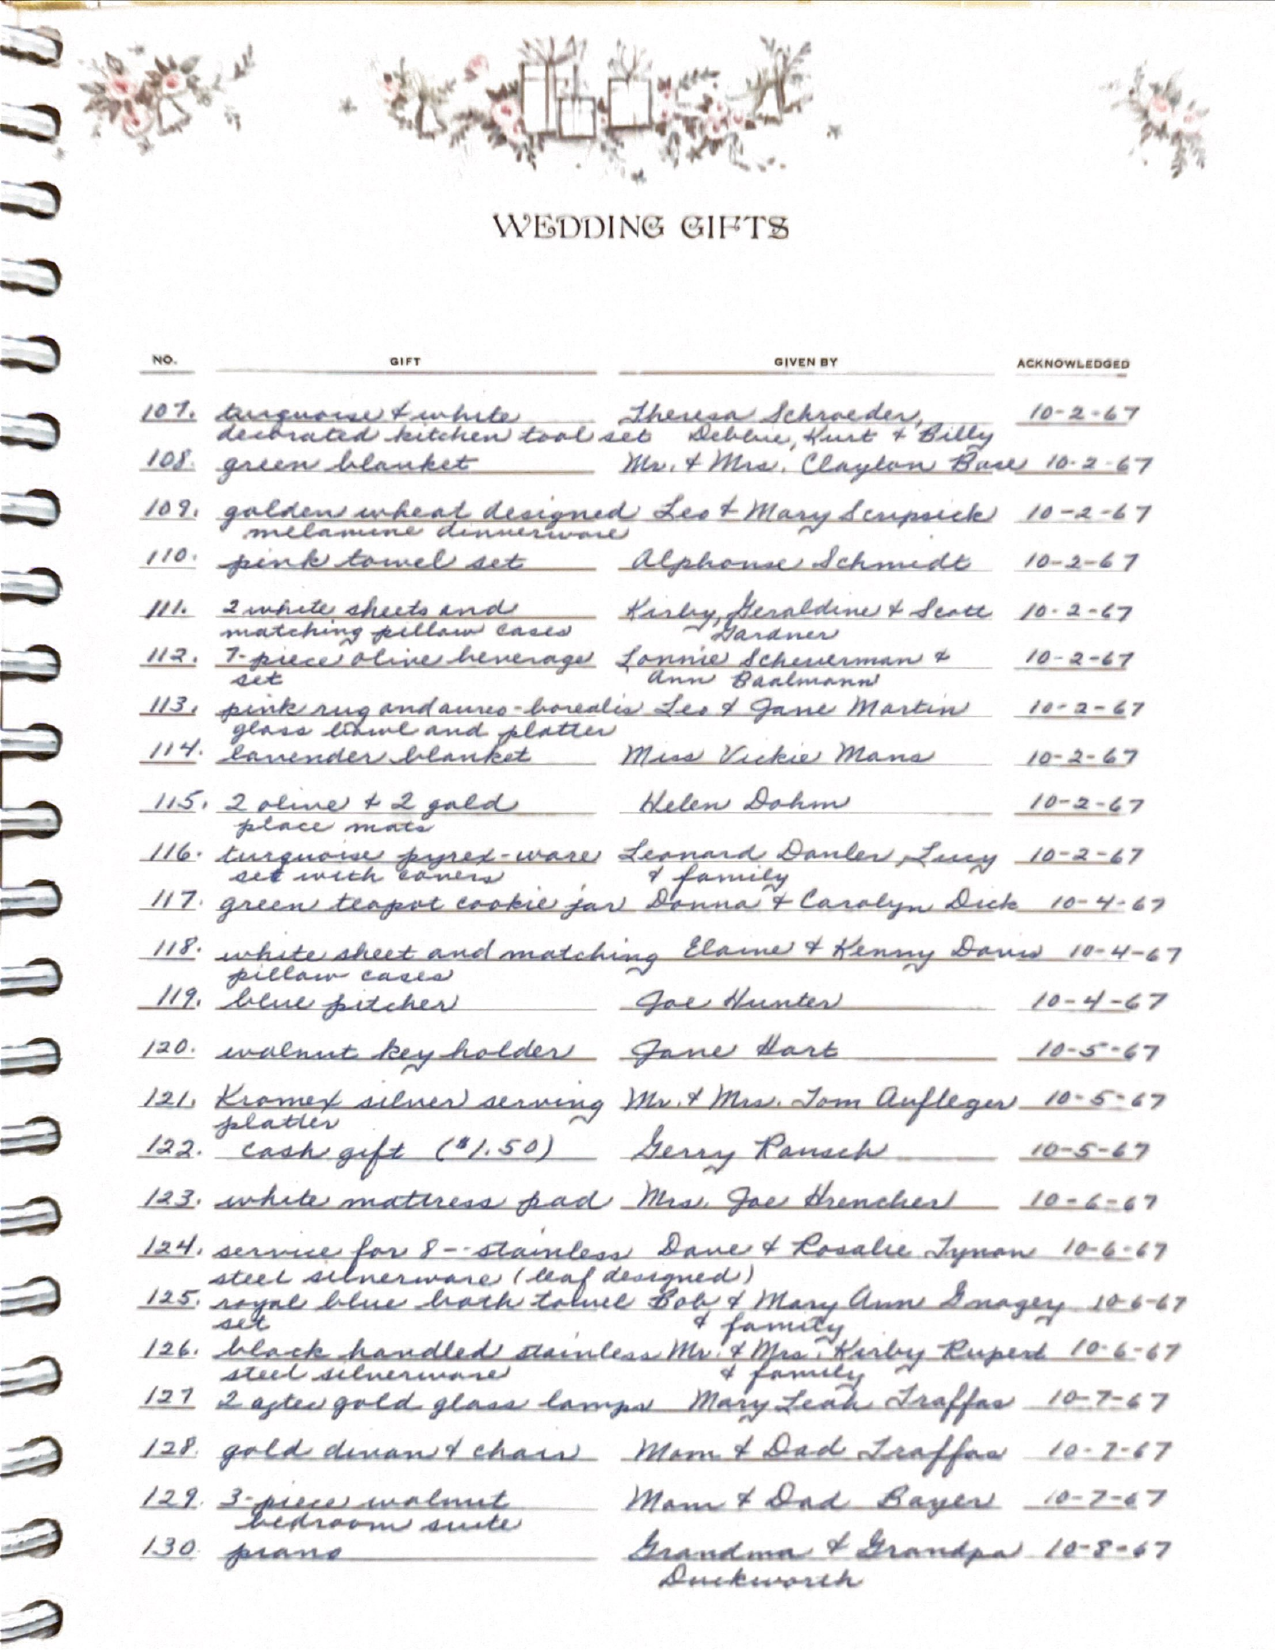 WEDDING GIFTS
NO. GIFT GIVEN BY ACKNOWLEDGED
107. turquoise & white Theresa Schroeder, 10-2-67
decorated kitchen tool set Debbie, Kurt & Billy
108. green blanket Mr. & Mrs. Clayton Base 10-2-67
109. golden wheat designed Leo & Mary Scripsick 10-2-67
melamine dinnerware
110. pink towel set Alphonse Schmidt 10-2-67
111. 2 white sheets and Kirby, Geraldine & Scott 10-2-67
matching pillow cases Gardner
112. 7-piece olive beverage Lonnie Scheuerman & 10-2-67
set Ann Baalmann
113. pink rug and aureo-borealis Leo & Jane Martin 10-2-67
glass bowl and platter
114. lavender blanket Miss Vickie Mans 10-2-67
115. 2 olive & 2 gold Helen Dohm 10-2-67
place mats
116. turquoise pyrex-ware Leonard Danler, Lucy 10-2-67
set with covers & family
117. green teapot cookie jar Donna & Carolyn Dick 10-4-67
118. white sheet and matching Elaine & Kenny Davis 10-4-67
pillow cases
119. blue pitcher Joe Hunter 10-4-67
120. walnut key holder Jane Hart 10-5-67
121. Kromex silver serving Mr. & Mrs. Tom Aufleger 10-5-67
platter
122. cash gift ($1.50) Gerry Rausch 10-5-67
123. white mattress pad Mrs. Joe Hrencher 10-6-67
124. service for 8--stainless Dave & Rosalie Tynon 10-6-67
steel silverware (leaf designed)
125. royal blue bath towel Bob & Mary Ann Gnagey 10-6-67
set & family
126. black handled stainless Mr. & Mrs. Kirby Rupert 10-6-67
steel silverware & family
127 2 aztec gold glass lamps Mary Leah Traffas 10-7-67
128. gold divan & chair Mom & Dad Traffas 10-7-67
129. 3-piece walnut Mom & Dad Bayer 10-7-67
bedroom suite
130. piano Grandma & Grandpa 10-8-67
Duckworth